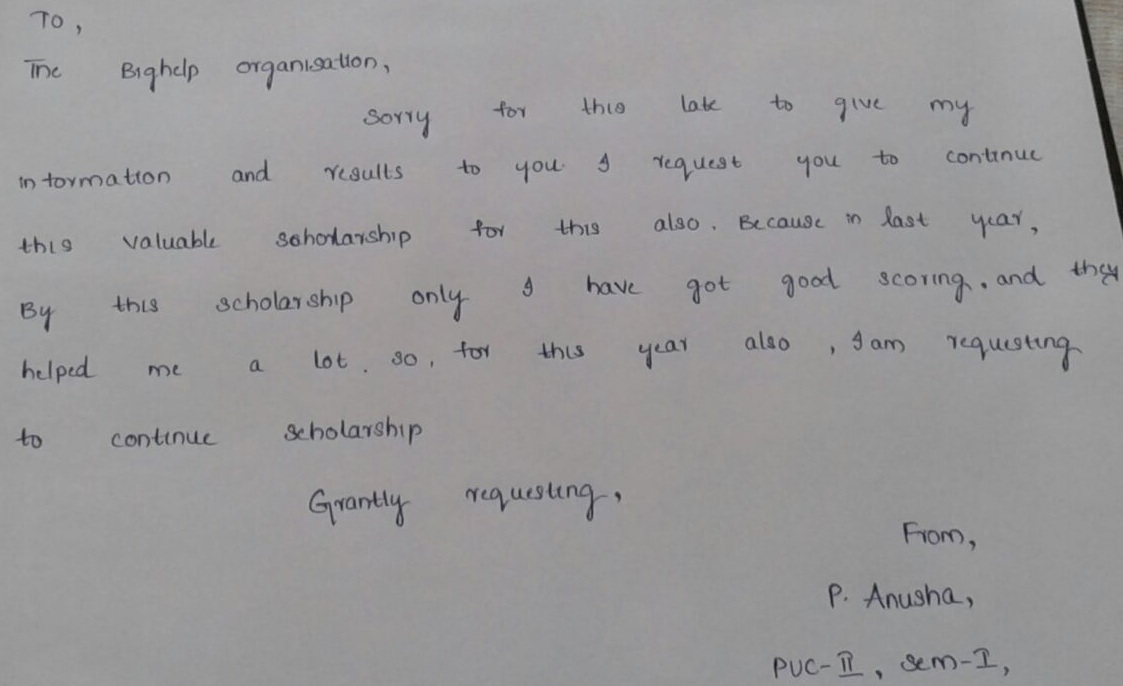 To,
The Bighelp organisation,
Sorry for this late to give my
information and results to you. I request you to continue
this valuable sohorlarship for this also. Because in last year,
By this scholarship only I have got good scoring. and they
helped me a lot. so, for this year also, I am requesting
to continue scholarship
Grantly requesting,
From,
P. Anusha,
PUC-II, sem-I,